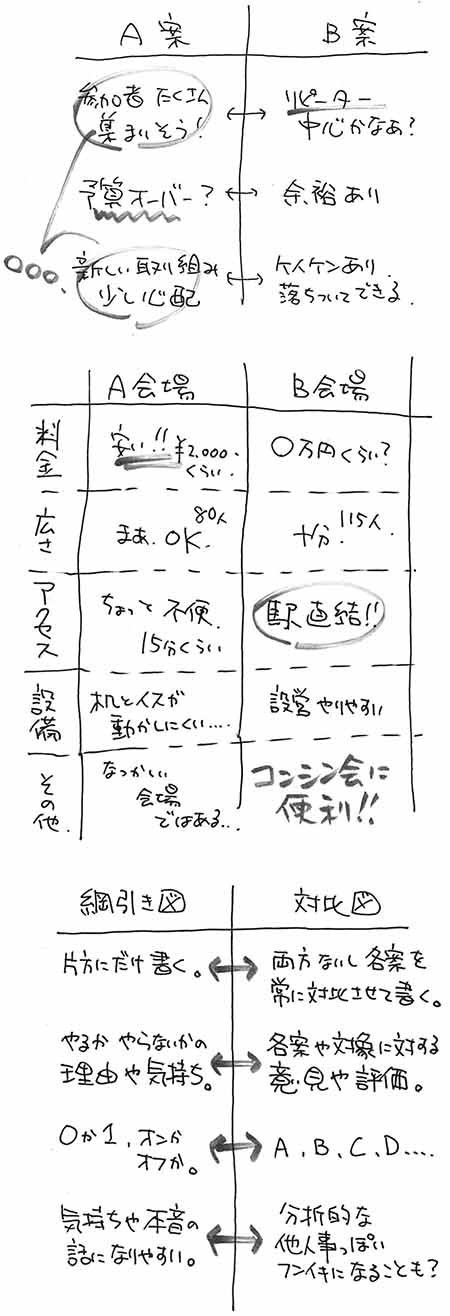 A案 B案
参加者 たくさん
集まりそう!
リピーター
中心かなあ?
予算オーバー?
余裕あり
新しい取り組み
少し心配
ケイケンあり
落ちついてできる.
A会場 B会場
料金
安い!! ¥2,000.
くらい.
〇万円くらい?
広さ
まあ. OK. 80人
十分. 115人.
アクセス
ちょっと 不便.
15分くらい
駅直結!!
設備
机とイスが
動かしにくい....
設営 やりやすい
その他.
なつかしい
会場
ではある...
コンシン会に
便利!!
綱引き図 対比図
片方にだけ書く。
両方ないし各案を
常に対比させて書く。
やるか やらないかの
理由や気持ち。
各案や対象に対する
意見や評価。
0か1、オンか
オフか。
A、B、C、D....
気持ちや本音の
話になりやすい。
分析的な
他人事っぽい
フンイキになることも?